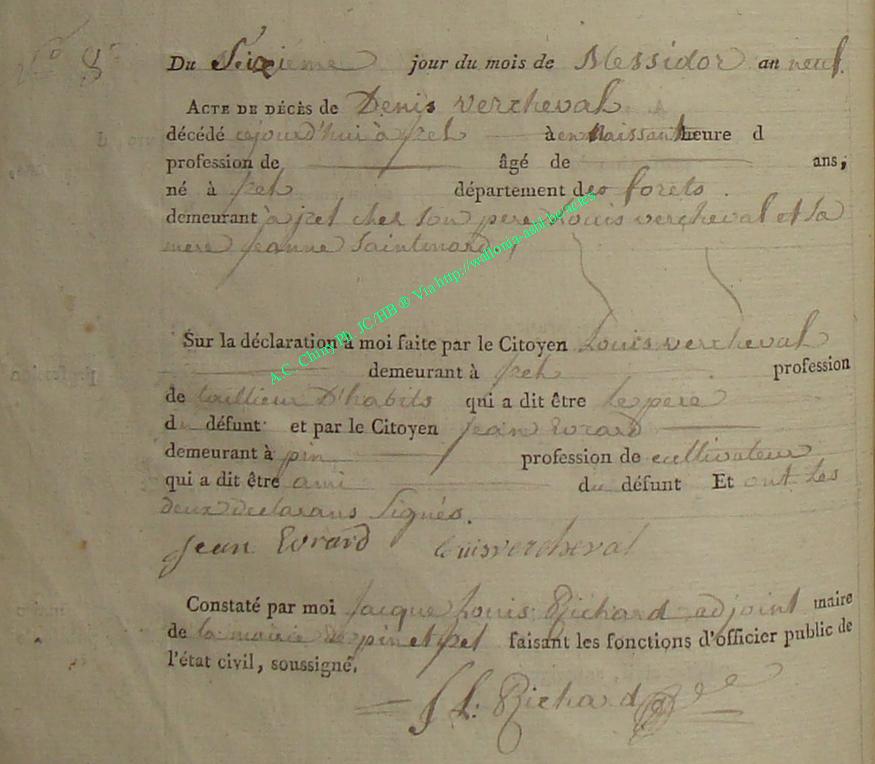 N.o 8.
Du Seizième jour du mois de Messidor an neuf.
ACTE DE DÉCÈS de Denis vercheval
décédé cejourd'hui à izel à en Naissant heure d
profession de âgé de ans,
né à izel département des forets.
demeurant à izel chez son pere Louis vercheval et sa
mere jeanne Saintmard
Sur la déclaration à moi faite par le Citoyen Louis vercheval
demeurant à izel profession
de taillieur D'habits qui a dit être le pere
du défunt et par le Citoyen jean Evrard
demeurant à pin profession de cultivateur
qui a dit être ami du défunt Et ont les
deux declarans Signés.
jean Evrard louis vercheval
Constaté par moi jacque Louis Richard adjoint maire
de la mairie de pin et izel faisant les fonctions d'officier public de
l'état civil, soussigné.
J L: Richard
A.C. Chiny Ph. JC/HB ® Via http://wallonia-asbl.be/actes